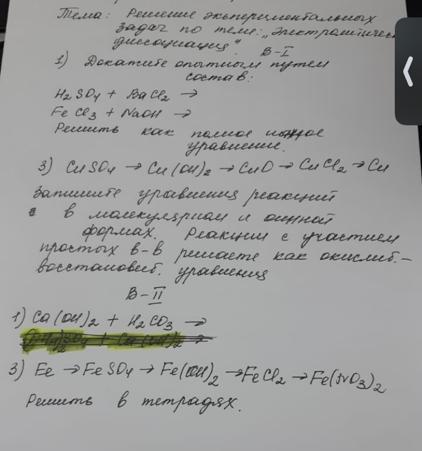 Тема: Решение экспериментальных
задач по теме: „Электролитическ
диссоциация". В-I
1) Докажите опытным путем
состав:
H₂SO₄ + BaCl₂ →
FeCl₃ + NaOH →
Решить как полное ионное
уравнение.
3) CuSO₄ → Cu(OH)₂ → CuO → CuCl₂ → Cu
Запишите уравнения реакций
в молекулярной и ионной
формах. Реакции с участием
простых в-в решаете как окислит.-
восстановит. уравнения
В-II
1) Ca(OH)₂ + H₂CO₃ →
3) Fe → FeSO₄ → Fe(OH)₂ → FeCl₂ → Fe(NO₃)₂
Решить в тетрадях.